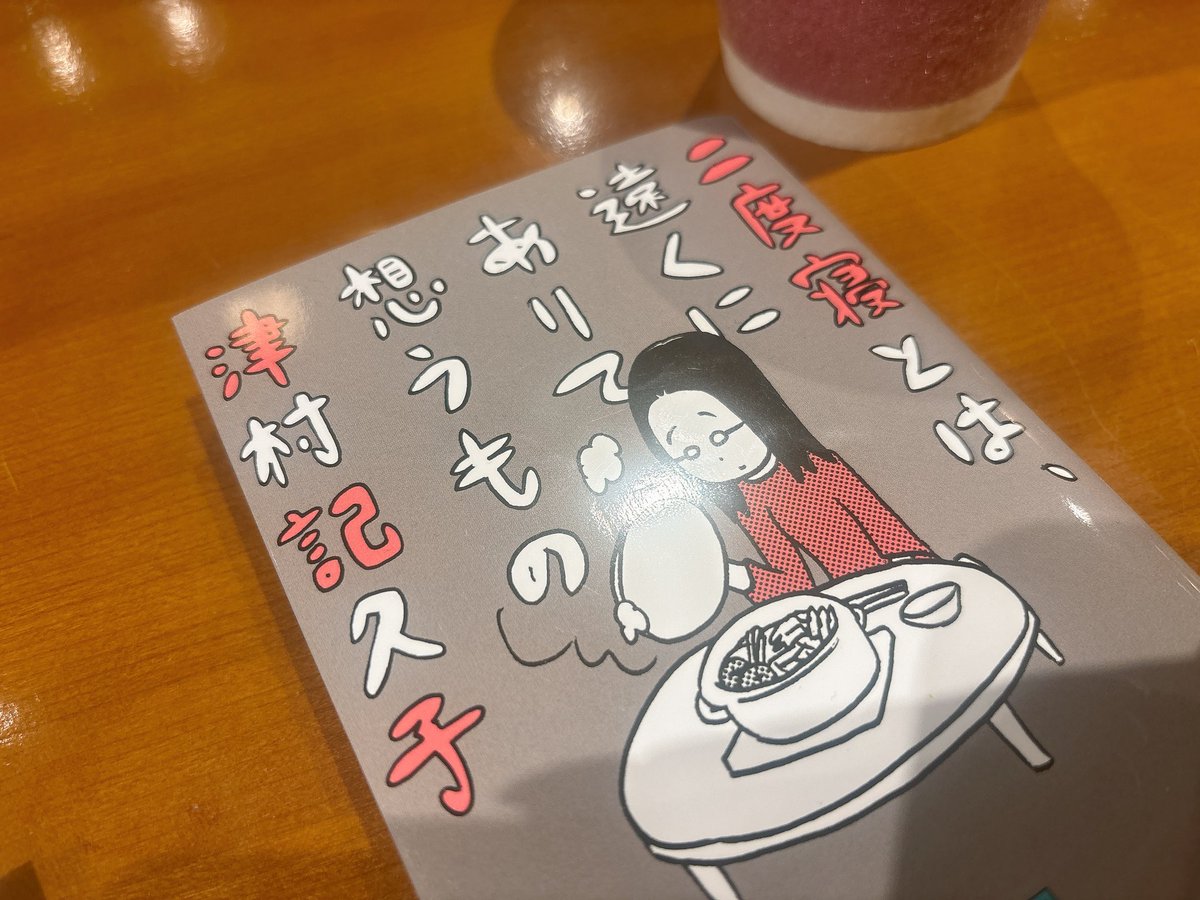 二度寝とは、
遠くに
ありて
想うもの
津村記久子